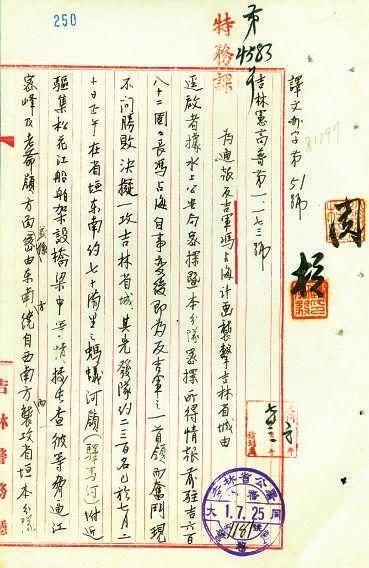 譯文办字第51號
特務課
第4583
吉林憲高普第一、一七三號
為通報反吉軍馮占海計画襲擊吉林省城由
逕啟者據水上公安局密探暨本分隊密探所得情報前駐吉六百
八十二團々長馮占海自事变後即為反吉軍之一首領而奮鬥現
不問勝敗決擬一攻吉林省城其先發隊約二三百名已於七月二
十日正午在省垣東南約七十滿里之螞蟻河嶺(驛馬河)附近
驅集松花江船舶架設橋梁中等情據此查彼等脅迫江
密峰及老爺嶺方面密由东南繞自西南方襲攻省垣本分隊
吉林警務廳
吉林省公署
大 1.7.25 同
250